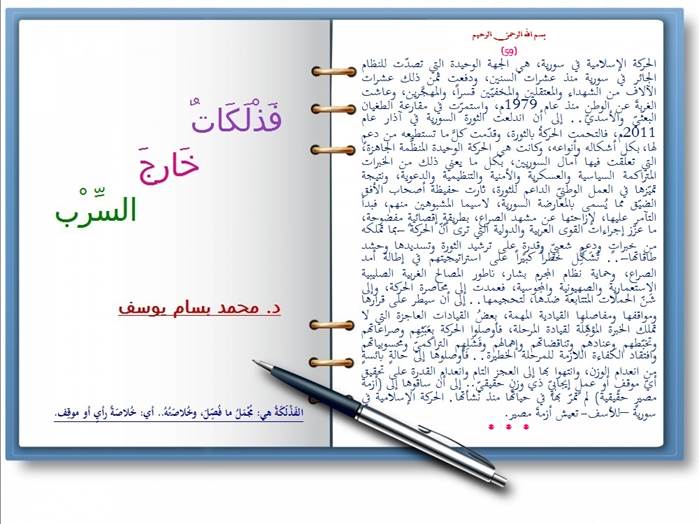 بسم الله الرحمن الرحيم
(59)
الحركة الإسلامية في سورية، هي الجهة الوحيدة التي تصدّت للنظام
الجائر في سورية منذ عشرات السنين، ودفعت ثمن ذلك عشرات
الآلاف من الشهداء والمعتقلين والمخفيّين قسراً، والمهجَّرين، وعاشت
الغربةَ عن الوطن منذ عام 1979م، واستمرّت في مقارعة الطغيان
البعثيّ والأسديّ.. إلى أن اندلعت الثورة السورية في آذار عام
2011م، فالتحمت الحركةُ بالثورة، وقدّمت كلَّ ما تستطيعه من دعمٍ
لها، بكل أشكاله وأنواعه، وكانت هي الحركة الوحيدة المنظَّمة الجاهزة،
التي تعلّقت فيها آمال السوريين، بكل ما يعني ذلك من الخبرات
المتراكمة السياسية والعسكرية والأمنية والتنظيمية والدعوية، ونتيجة
تميّزها في العمل الوطنيّ الداعم للثورة، ثارت حفيظة أصحاب الأفق
الضيّق مما يُسمى بالمعارضة السورية، لاسيما المشبوهين منهم، فبدأ
التآمر عليها، لإزاحتها عن مشهد الصراع، بطريقةٍ إقصائيةٍ مفضوحة،
ما عزّز إجراءات القوى العربية والدولية التي ترى أنّ الحركة –بما تملكه
من خبراتٍ ودعمٍ شعبيّ وقدرةٍ على ترشيد الثورة وتسديدها وحشد
طاقاتها-.. تُشكِّل خطراً كبيراً على استراتيجيّتهم في إطالة أمد
الصراع، وحماية نظام المجرم بشار، ناطور المصالح الغربية الصليبية
الاستعمارية والصهيونية والمجوسية، فعمدت إلى محاصرة الحركة، وإلى
شنّ الحملات المتتابعة ضدها، لتحجيمها.. إلى أن سيطر على قرارها
ومواقفها ومفاصلها القيادية المهمة، بعضُ القيادات العاجزة التي لا
تملك الخبرة المؤهِّلة لقيادة المرحلة، فأوصلوا الحركة بغَيّهم وصراعاتهم
وتخبّطهم وعنادهم وتناقضاتهم وإهمالهم وفشلهم التراكميّ ومحسوبياتهم
وافتقاد الكفاءة اللازمة للمرحلة الخطيرة.. فأوصلوها إلى حالةٍ بائسةٍ
من انعدام الوزن، وانتهوا بها إلى العجز التام وانعدام القدرة على تحقيق
أيّ موقفٍ أو عملٍ إيجابيّ ذي وزنٍ حقيقيّ.. إلى أن ساقوها إلى (أزمة
مصيرٍ حقيقية) لم تمرّ بها في حياتها منذ نشأتها. الحركة الإسلامية في
سورية –للأسف- تعيش أزمة مصير.
* * *
فَذْلَكَاتٌ
خَارجَ
السِّرْب
د. محمد بسام يوسف
الفَذْلَكَةُ هي: مُجْمَلُ ما فُصِّلَ، وخُلاصَتُهُ.. أي: خُلاصَةُ رأيٍ أو موقِف.